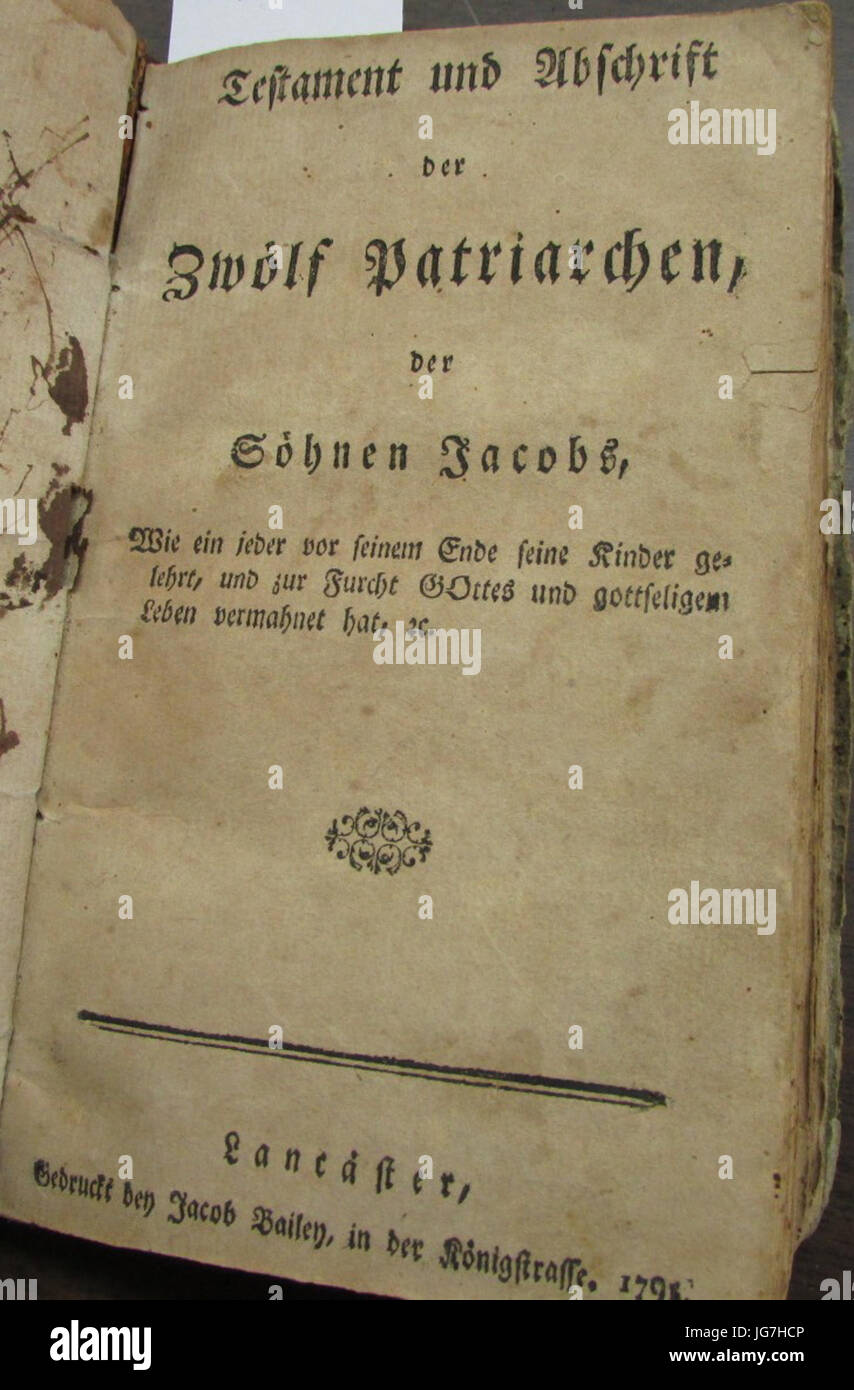 Testament und Abschrift
der
Zwölf Patriarchen,
der
Söhnen Jacobs,
Wie ein jeder vor seinem Ende seine Kinder ge-
lehrt, und zur Furcht GOttes und gottseligem
Leben vermahnet hat, ꝛc.
Lancäster,
Gedruckt bey Jacob Bailey, in der Königstrasse.
alamy
alamy
alamy
alamy stock photo
JG7HCP
www.alamy.com